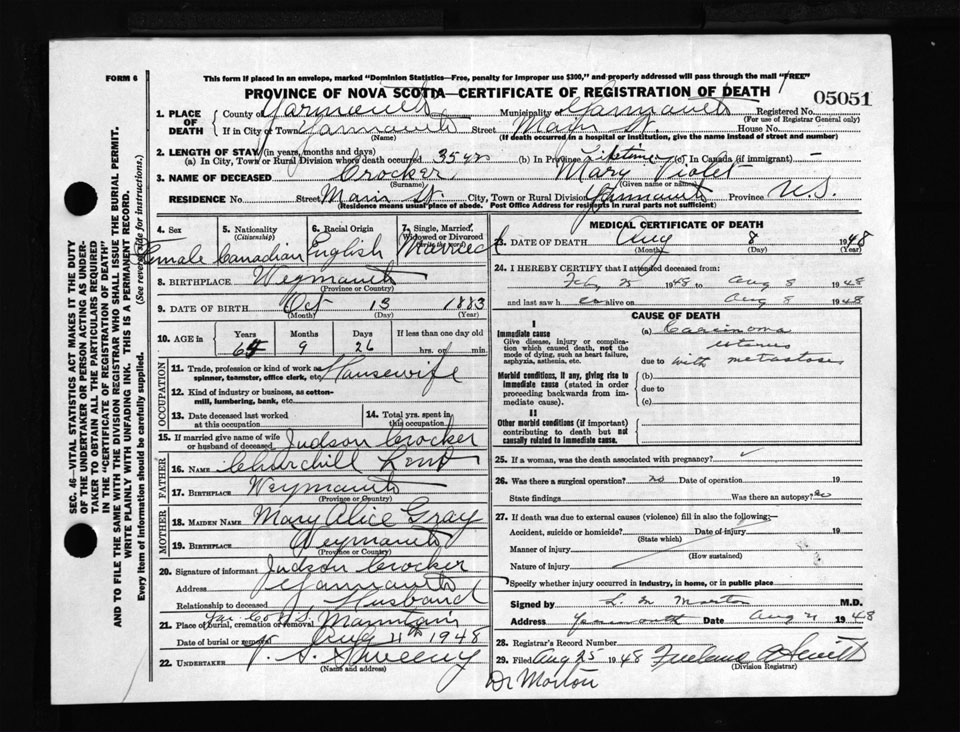 FORM 6
This form if placed in an envelope, marked "Dominion Statistics—Free, penalty for improper use $300," and properly addressed will pass through the mail "FREE"
PROVINCE OF NOVA SCOTIA—CERTIFICATE OF REGISTRATION OF DEATH
05051
1. PLACE OF DEATH
County of Yarmouth Municipality of Yarmouth Registered No.
(For use of Registrar General only)
If in City or Town Yarmouth Street Main St. House No.
(Name) (If death occurred in a hospital or institution, give the name instead of street and number)
2. LENGTH OF STAY (in years, months and days)
(a) In City, Town or Rural Division where death occurred 35 yrs (b) In Province Lifetime (c) In Canada (if immigrant) —
3. NAME OF DECEASED Crocker, Mary Violet
(Surname) (Given name or names)
RESIDENCE No. Street Main St. City, Town or Rural Division Yarmouth Province N.S.
(Residence means usual place of abode. Post Office Address for residents in rural parts not sufficient)
4. Sex
Female
5. Nationality
(Citizenship)
Canadian
6. Racial Origin
English
7. Single, Married, Widowed or Divorced
Married
8. BIRTHPLACE Weymouth
(Province or Country)
9. DATE OF BIRTH Oct 13 1883
(Month) (Day) (Year)
10. AGE in
Years Months Days If less than one day
64 9 26 hrs. or min.
OCCUPATION
11. Trade, profession or kind of work as spinner, teamster, office clerk, etc. Housewife
12. Kind of industry or business, as cotton-mill, lumbering, bank, etc.
13. Date deceased last worked at this occupation
14. Total yrs. spent in this occupation
15. If married give name of wife or husband of deceased Judson Crocker
FATHER
16. NAME Churchill Lent
17. BIRTHPLACE Weymouth
(Province or Country)
MOTHER
18. MAIDEN NAME Mary Alice Gray
19. BIRTHPLACE Weymouth
(Province or Country)
20. Signature of informant Judson Crocker
Address Yarmouth
Relationship to deceased Husband
Yar. Co. N.S.
21. Place of burial, cremation or removal Mountain
Date of burial or removal Aug 11th 1948
22. UNDERTAKER V. S. Sweeny
(Name and address)
MEDICAL CERTIFICATE OF DEATH
23. DATE OF DEATH Aug 8 1948
(Month) (Day) (Year)
24. I HEREBY CERTIFY that I attended deceased from:
Feb 25 1948 to Aug 8 1948
and last saw h er alive on Aug 8 1948
CAUSE OF DEATH
I
Immediate cause
Give disease, injury or complication which caused death, not the mode of dying, such as heart failure, asphyxia, asthenia, etc.
(a) Carcinoma
uterus
due to with metastoses
Morbid conditions, if any, giving rise to immediate cause (stated in order proceeding backwards from immediate cause).
(b)
due to
(c)
II
Other morbid conditions (if important) contributing to death but not causally related to immediate cause.
25. If a woman, was the death associated with pregnancy?
26. Was there a surgical operation? no Date of operation 19
State findings Was there an autopsy? no
27. If death was due to external causes (violence) fill in also the following:—
Accident, suicide or homicide? Date of injury 19
(State which)
Manner of injury
(How sustained)
Nature of injury
Specify whether injury occurred in industry, in home, or in public place
Signed by L. M. Morton M.D.
Address Yarmouth Date Aug 1948
28. Registrar's Record Number
29. Filed Aug 25 1948
(Division Registrar)
Dr Morton
SEC. 46—VITAL STATISTICS ACT MAKES IT THE DUTY
OF THE UNDERTAKER OR PERSON ACTING AS UNDER-
TAKER TO OBTAIN ALL THE PARTICULARS REQUIRED
IN THE "CERTIFICATE OF REGISTRATION OF DEATH"
AND TO FILE THE SAME WITH THE DIVISION REGISTRAR WHO SHALL ISSUE THE BURIAL PERMIT.
WRITE PLAINLY WITH UNFADING INK. THIS IS A PERMANENT RECORD.
Every item of information should be carefully supplied. (See reverse side for instructions.)